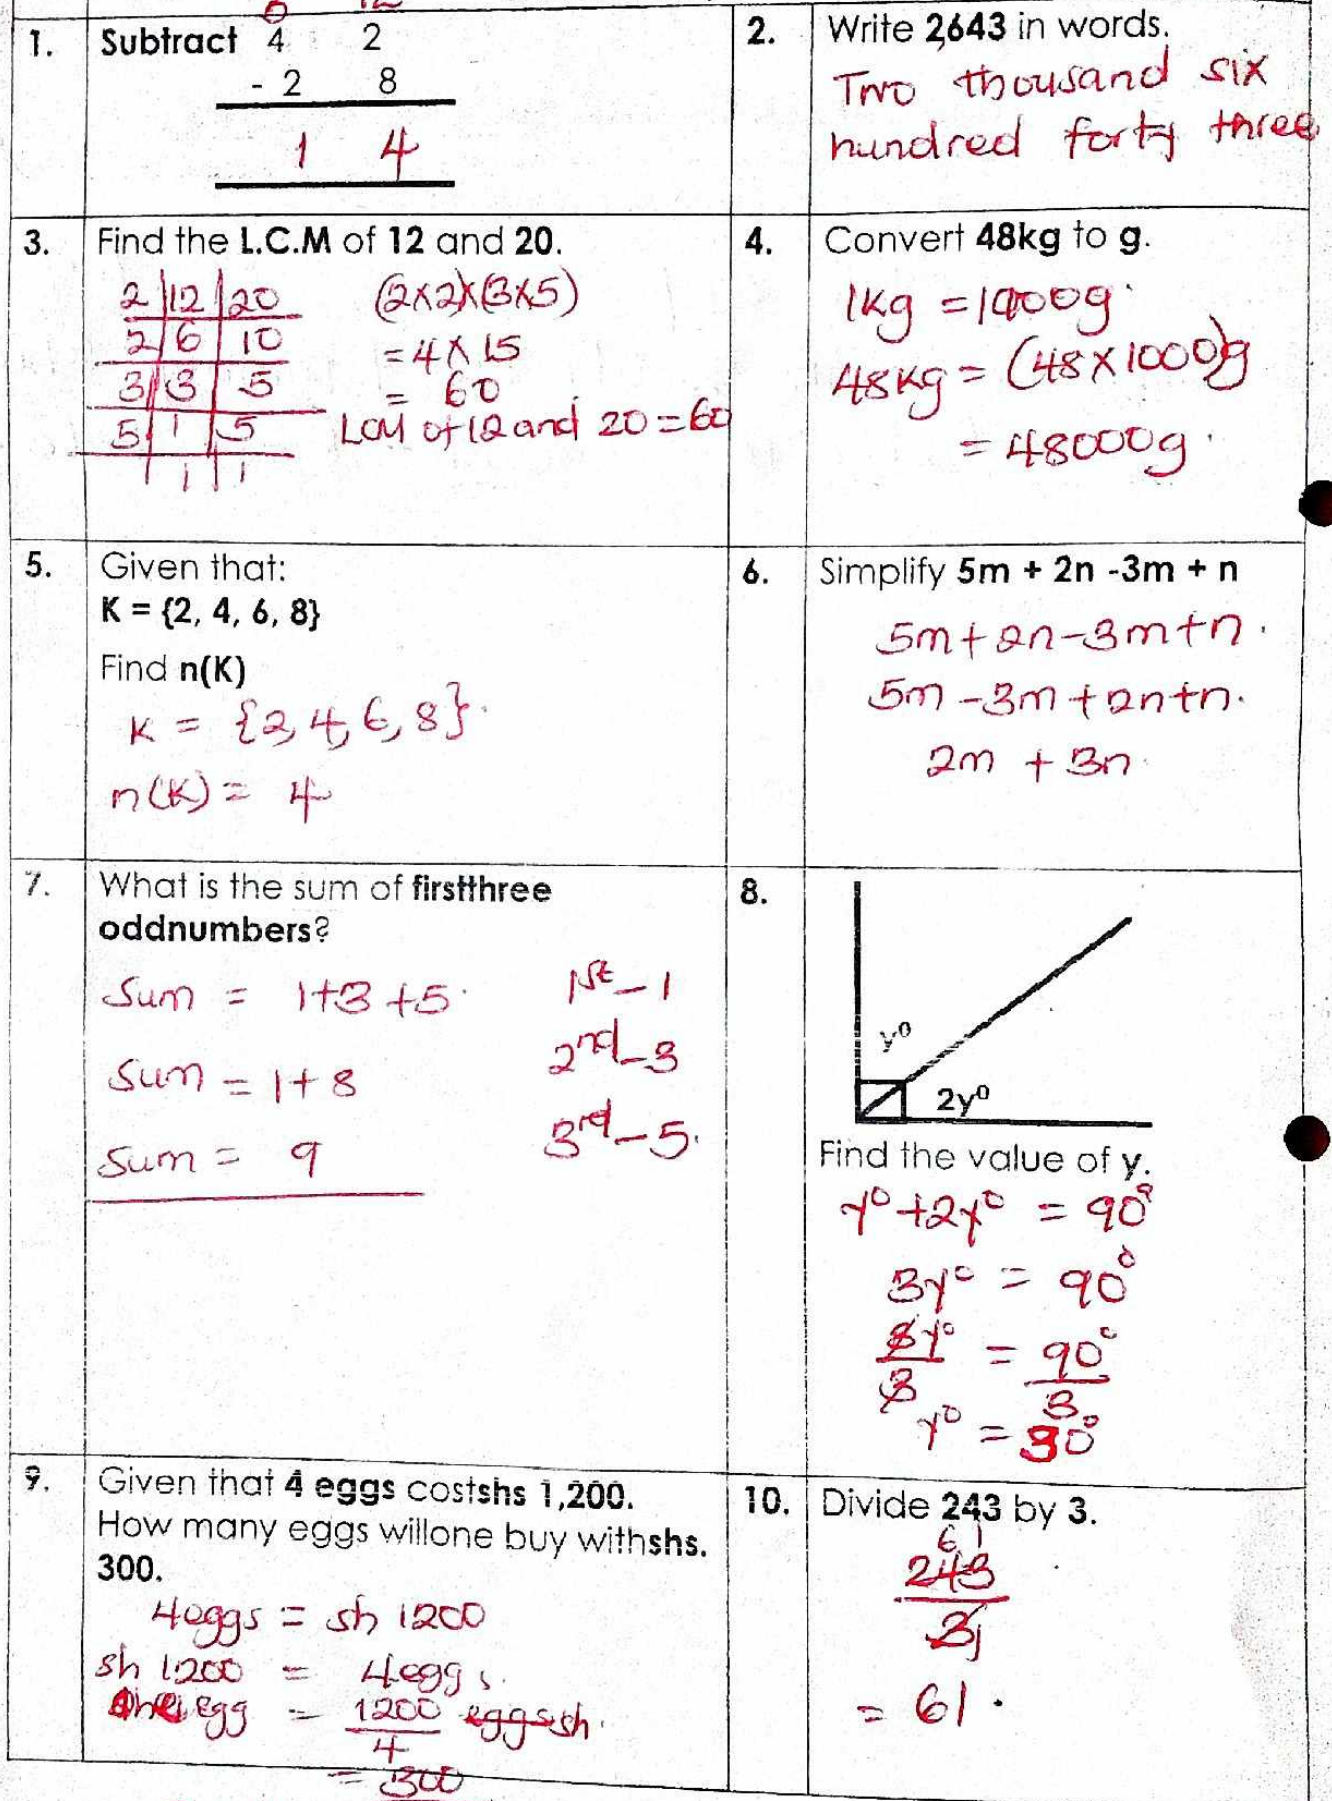 1. Subtract 4 2
- 2 8
1 4
2. Write 2,643 in words.
Two thousand six
hundred forty three
3. Find the L.C.M of 12 and 20.
2 12 20
2 6 10
3 3 5
5 1 5
1 1
(2×2)×(3×5)
= 4 × 15
= 60
LCM of 12 and 20 = 60
4. Convert 48kg to g.
1kg = 1000g
48kg = (48×1000)g
= 48000g
5. Given that:
K = {2, 4, 6, 8}
Find n(K)
K = {2, 4, 6, 8}
n(K) = 4
6. Simplify 5m + 2n -3m + n
5m + 2n - 3m + n
5m - 3m + 2n + n
2m + 3n
7. What is the sum of firstthree
oddnumbers?
Sum = 1+3+5
Sum = 1+8
Sum = 9
1st - 1
2nd - 3
3rd - 5
8.
y⁰
2y⁰
Find the value of y.
y⁰+2y⁰ = 90⁰
3y⁰ = 90⁰
3y⁰ = 90⁰
3 3
y⁰ = 30⁰
9. Given that 4 eggs costshs 1,200.
How many eggs willone buy withshs.
300.
4eggs = sh 1200
sh 1200 = 4eggs.
egg = 1200 eggs sh.
4
= 300
10. Divide 243 by 3.
6 1
243
3
= 61.